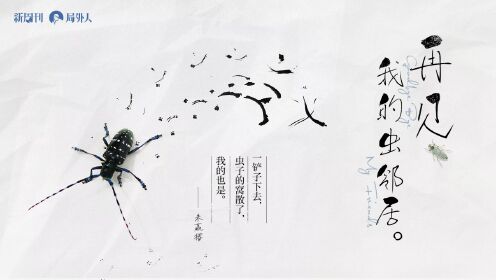 新周刊 局外人
再见
我的虫邻居。
一铲子下去,
虫子的窝散了,
我的也是。
——朱赢椿